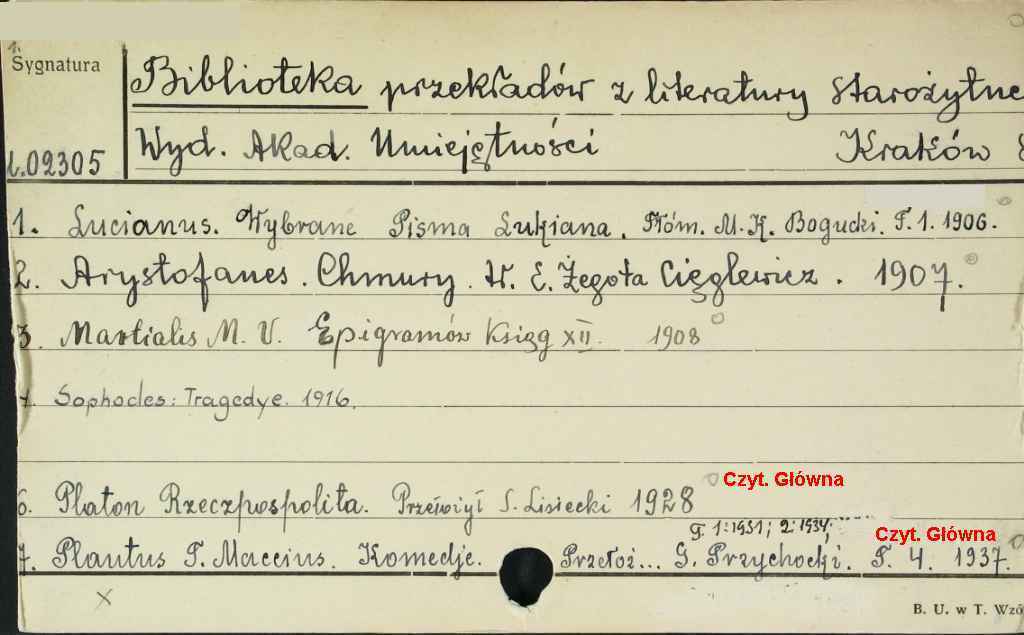 Sygnatura
Biblioteka przekładów z literatury starożytne
Wyd. Akad. Umiejętności Kraków
02305
1. Lucianus. Wybrane Pisma Lukiana. Tłóm. M. K. Bogucki. T. 1. 1906.
2. Arystofanes. Chmury. W. E. Żegota Cięglewicz. 1907.
3. Martialis M. V. Epigramów Ksiąg XII. 1908
4. Sophocles: Tragedye. 1916.
Czyt. Główna
6. Platon Rzeczpospolita. S. Lisiecki 1928
T. 1:1931; 2:1934;
Czyt. Główna
7. Plautus T. Maccius. Komedje. Przełoż... G. Przychocki. T. 4. 1937.
X
B. U. w T. Wzó